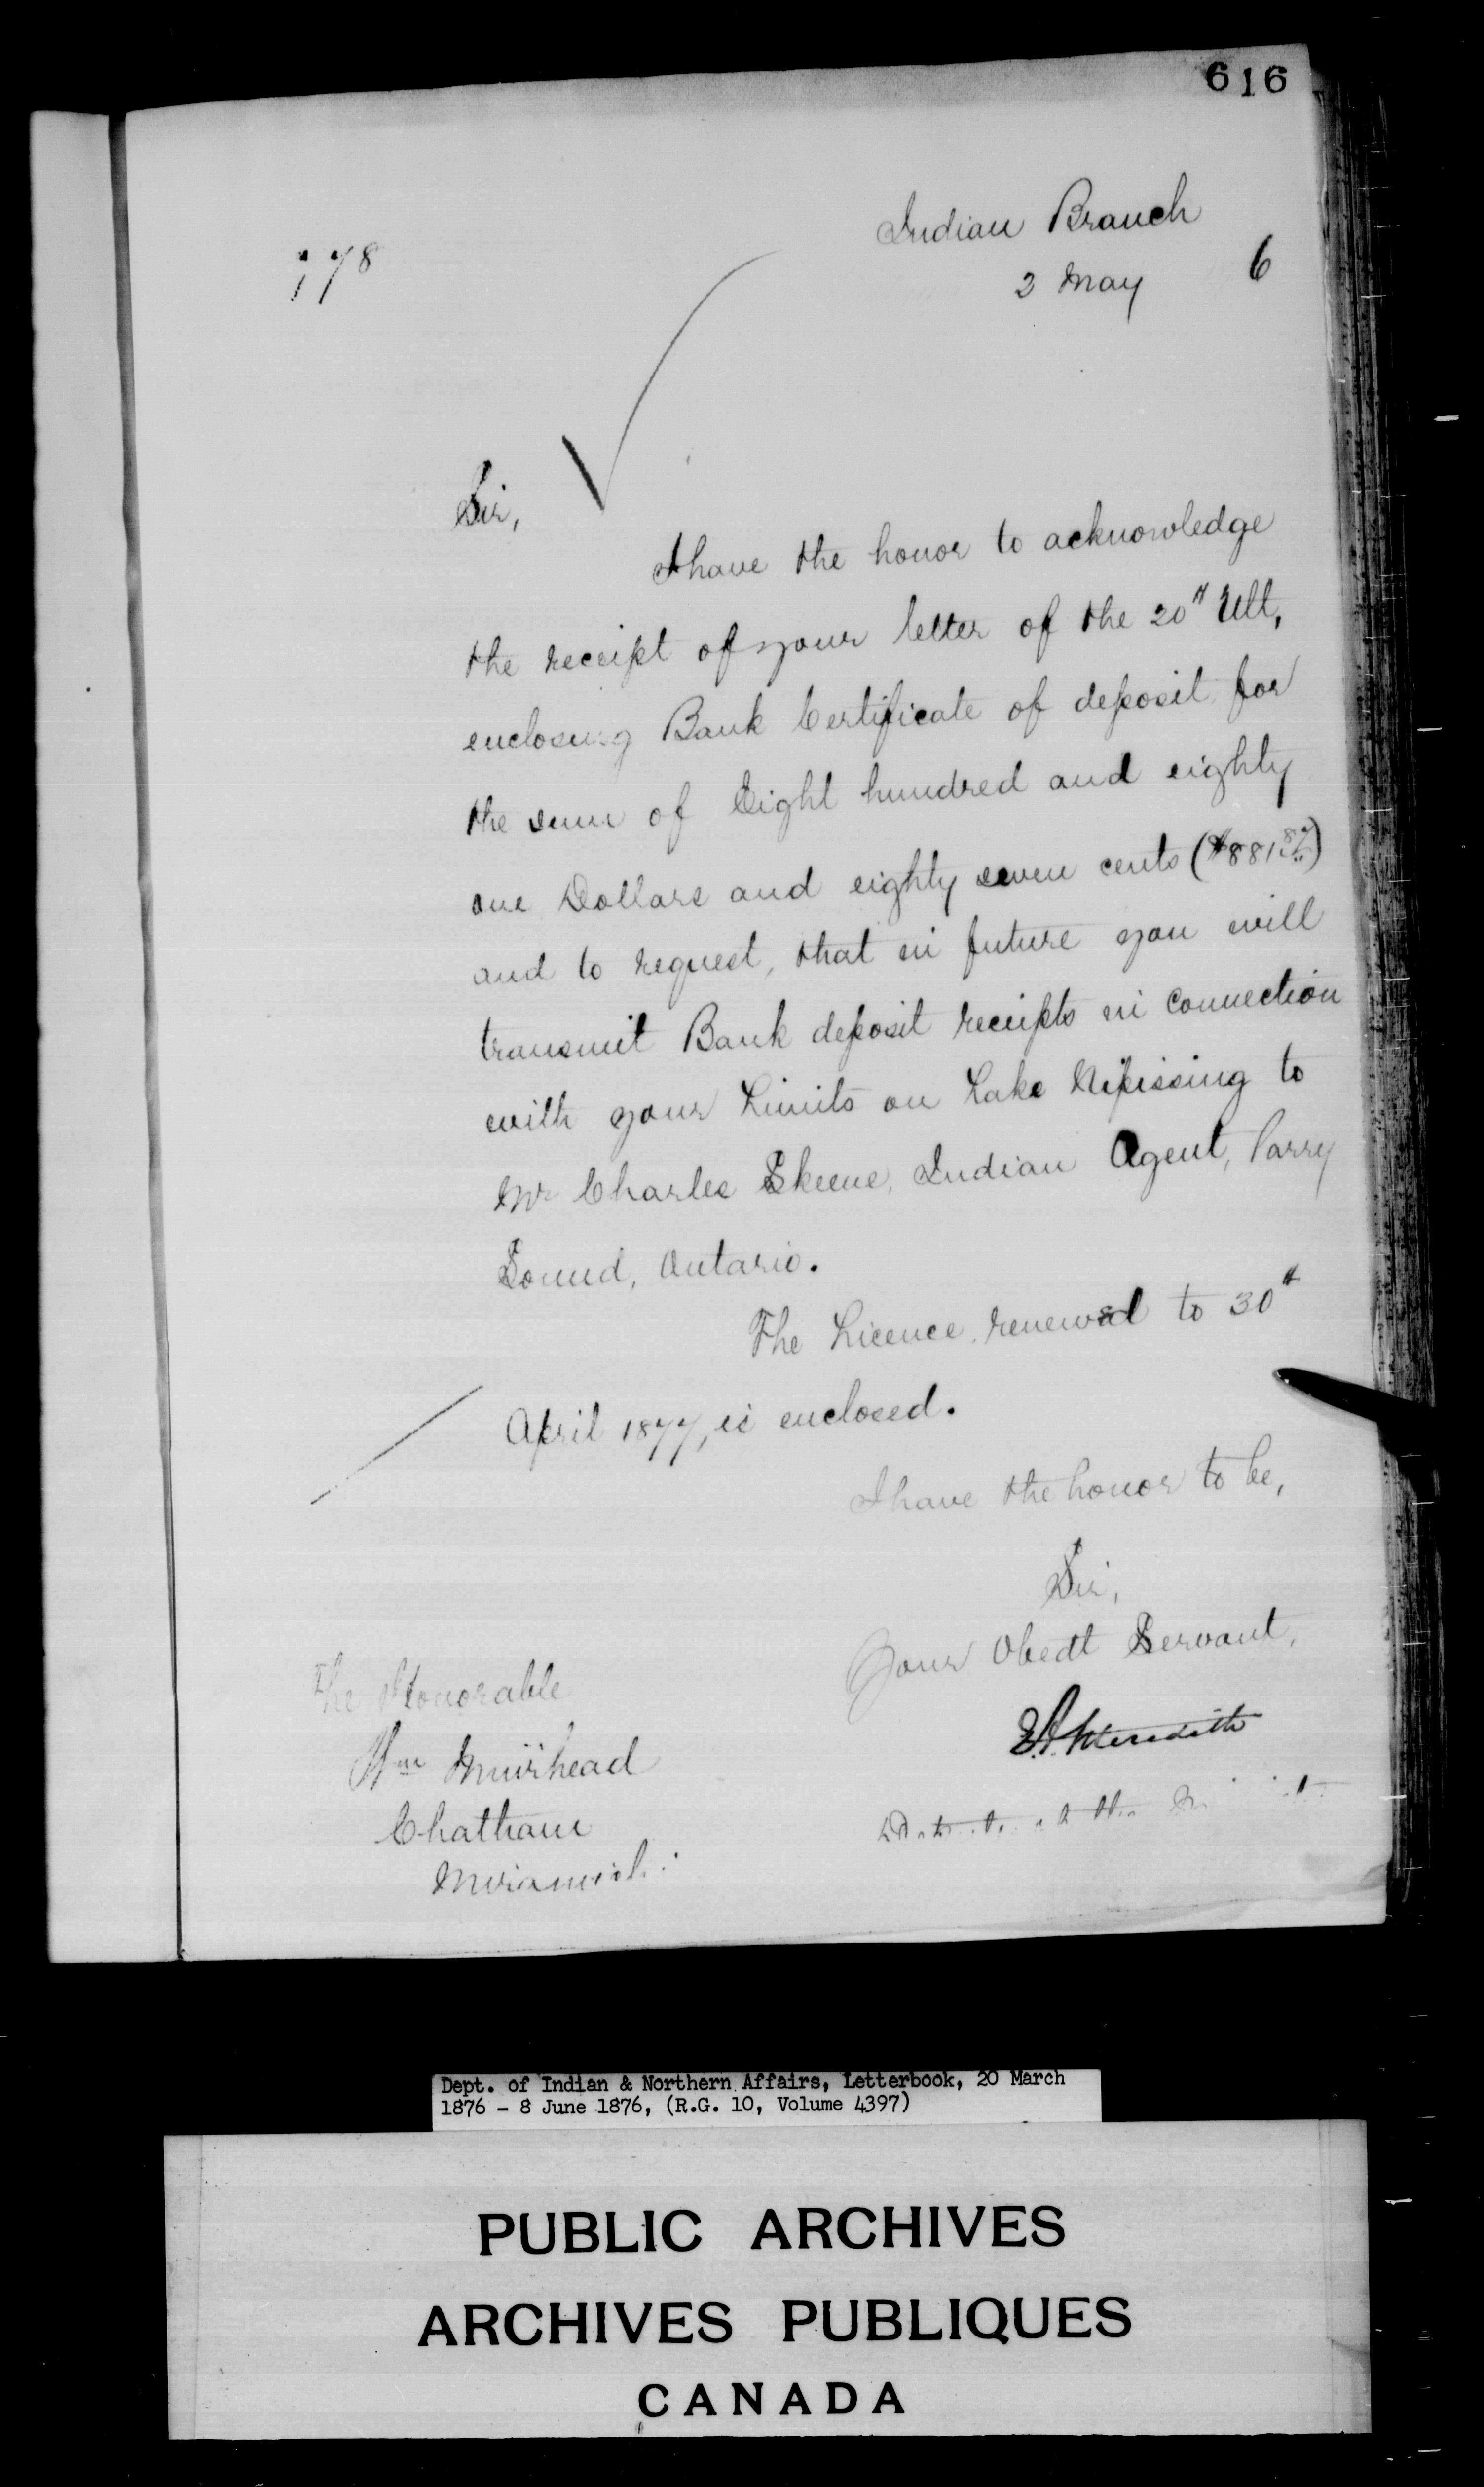 616
Indian Branch
178
2 May 6
Sir,
I have the honor to acknowledge
the receipt of your letter of the 20th Ult,
enclosing Bank Certificate of deposit for
the sum of Eight hundred and eighty
one Dollars and eighty seven cents ($881 87/..)
and to request, that in future you will
transmit Bank deposit receipts in connection
with your Limits on Lake Nipissing to
Mr Charles Skeene, Indian Agent, Parry
Sound, Ontario.
The Licence renewal to 30th
April 1877, is enclosed.
I have the honor to be,
Sir,
Your Obedt Servant,
E.A. Meredith
The Honorable
Wm Muirhead
Chatham
Miramichi
Dept. of Indian & Northern Affairs, Letterbook, 20 March
1876 - 8 June 1876, (R.G. 10, Volume 4397)
PUBLIC ARCHIVES
ARCHIVES PUBLIQUES
CANADA